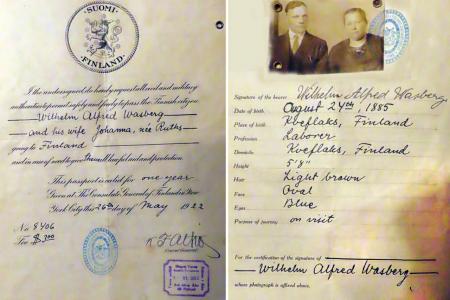 SUOMI
FINLAND
I the undersigned do hereby request all civil and military
authorities to permit safely and freely to pass the Finnish citizen
Wilhelm Alfred Wasberg
and his wife Johanna, née Ruths
going to Finland
and in case of need to give them all lawful aid and protection.
This passport is valid for one year
Given at The Consulate General of Finland in New
York City this 26th day of May 1922
No 8406
Fee $3.00
Signature of the bearer Wilhelm Alfred Wasberg
Date of birth August 24th, 1885
Place of birth Kveflaks, Finland
Profession Laborer
Domicile Kveflaks, Finland
Height 5'8"
Hair Light brown
Face Oval
Eyes Blue
Purpose of journey on visit
For the certification of the signature of
Wilhelm Alfred Wasberg
whose photograph is affixed above.